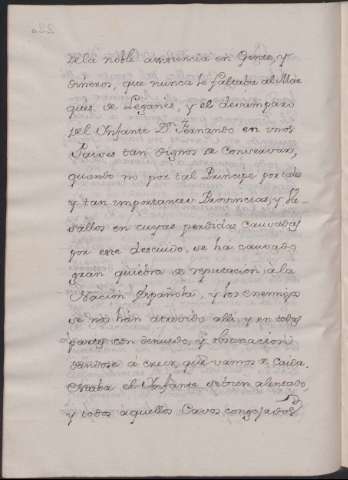 de la noble assistencia en Gente, y
dineros, que nunca le faltaba al Mar
ques de Leganes, y el desamparo
del Infante Dn. Fernando en unos
Paises tan dignos de conservars,
quando no por tal Principe por tales
y tan importantes Provincias, y Va-
sallos en cuyas perdidas causadas
por ese descuido, se ha causado
gran quiebra de reputacion à la
Nacion Española, y los enemigos
se nos han atrevido alli, y en todas
partes con denuedo, y obstinacion
dandose à creer, que vamos de caida.
Estaba el Infante de bien alentado,
y todos aquellos Cavos congojados